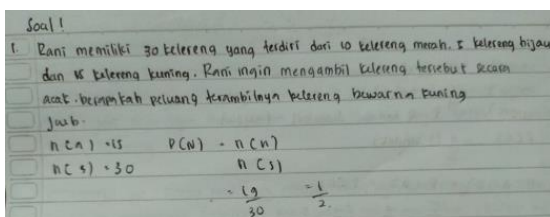 Soal !
1. Rani memiliki 30 kelereng yang terdiri dari 10 kelereng merah. 5 kelereng hijau
dan 15 kelereng kuning. Rani ingin mengambil kelereng tersebut secara
acak. berapakah peluang terambilnya kelereng bewarna kuning
Jwb.
n(n) = 15 P(N) = n(n)
n(s) = 30 n(s)
= 15 = 1
30 2.